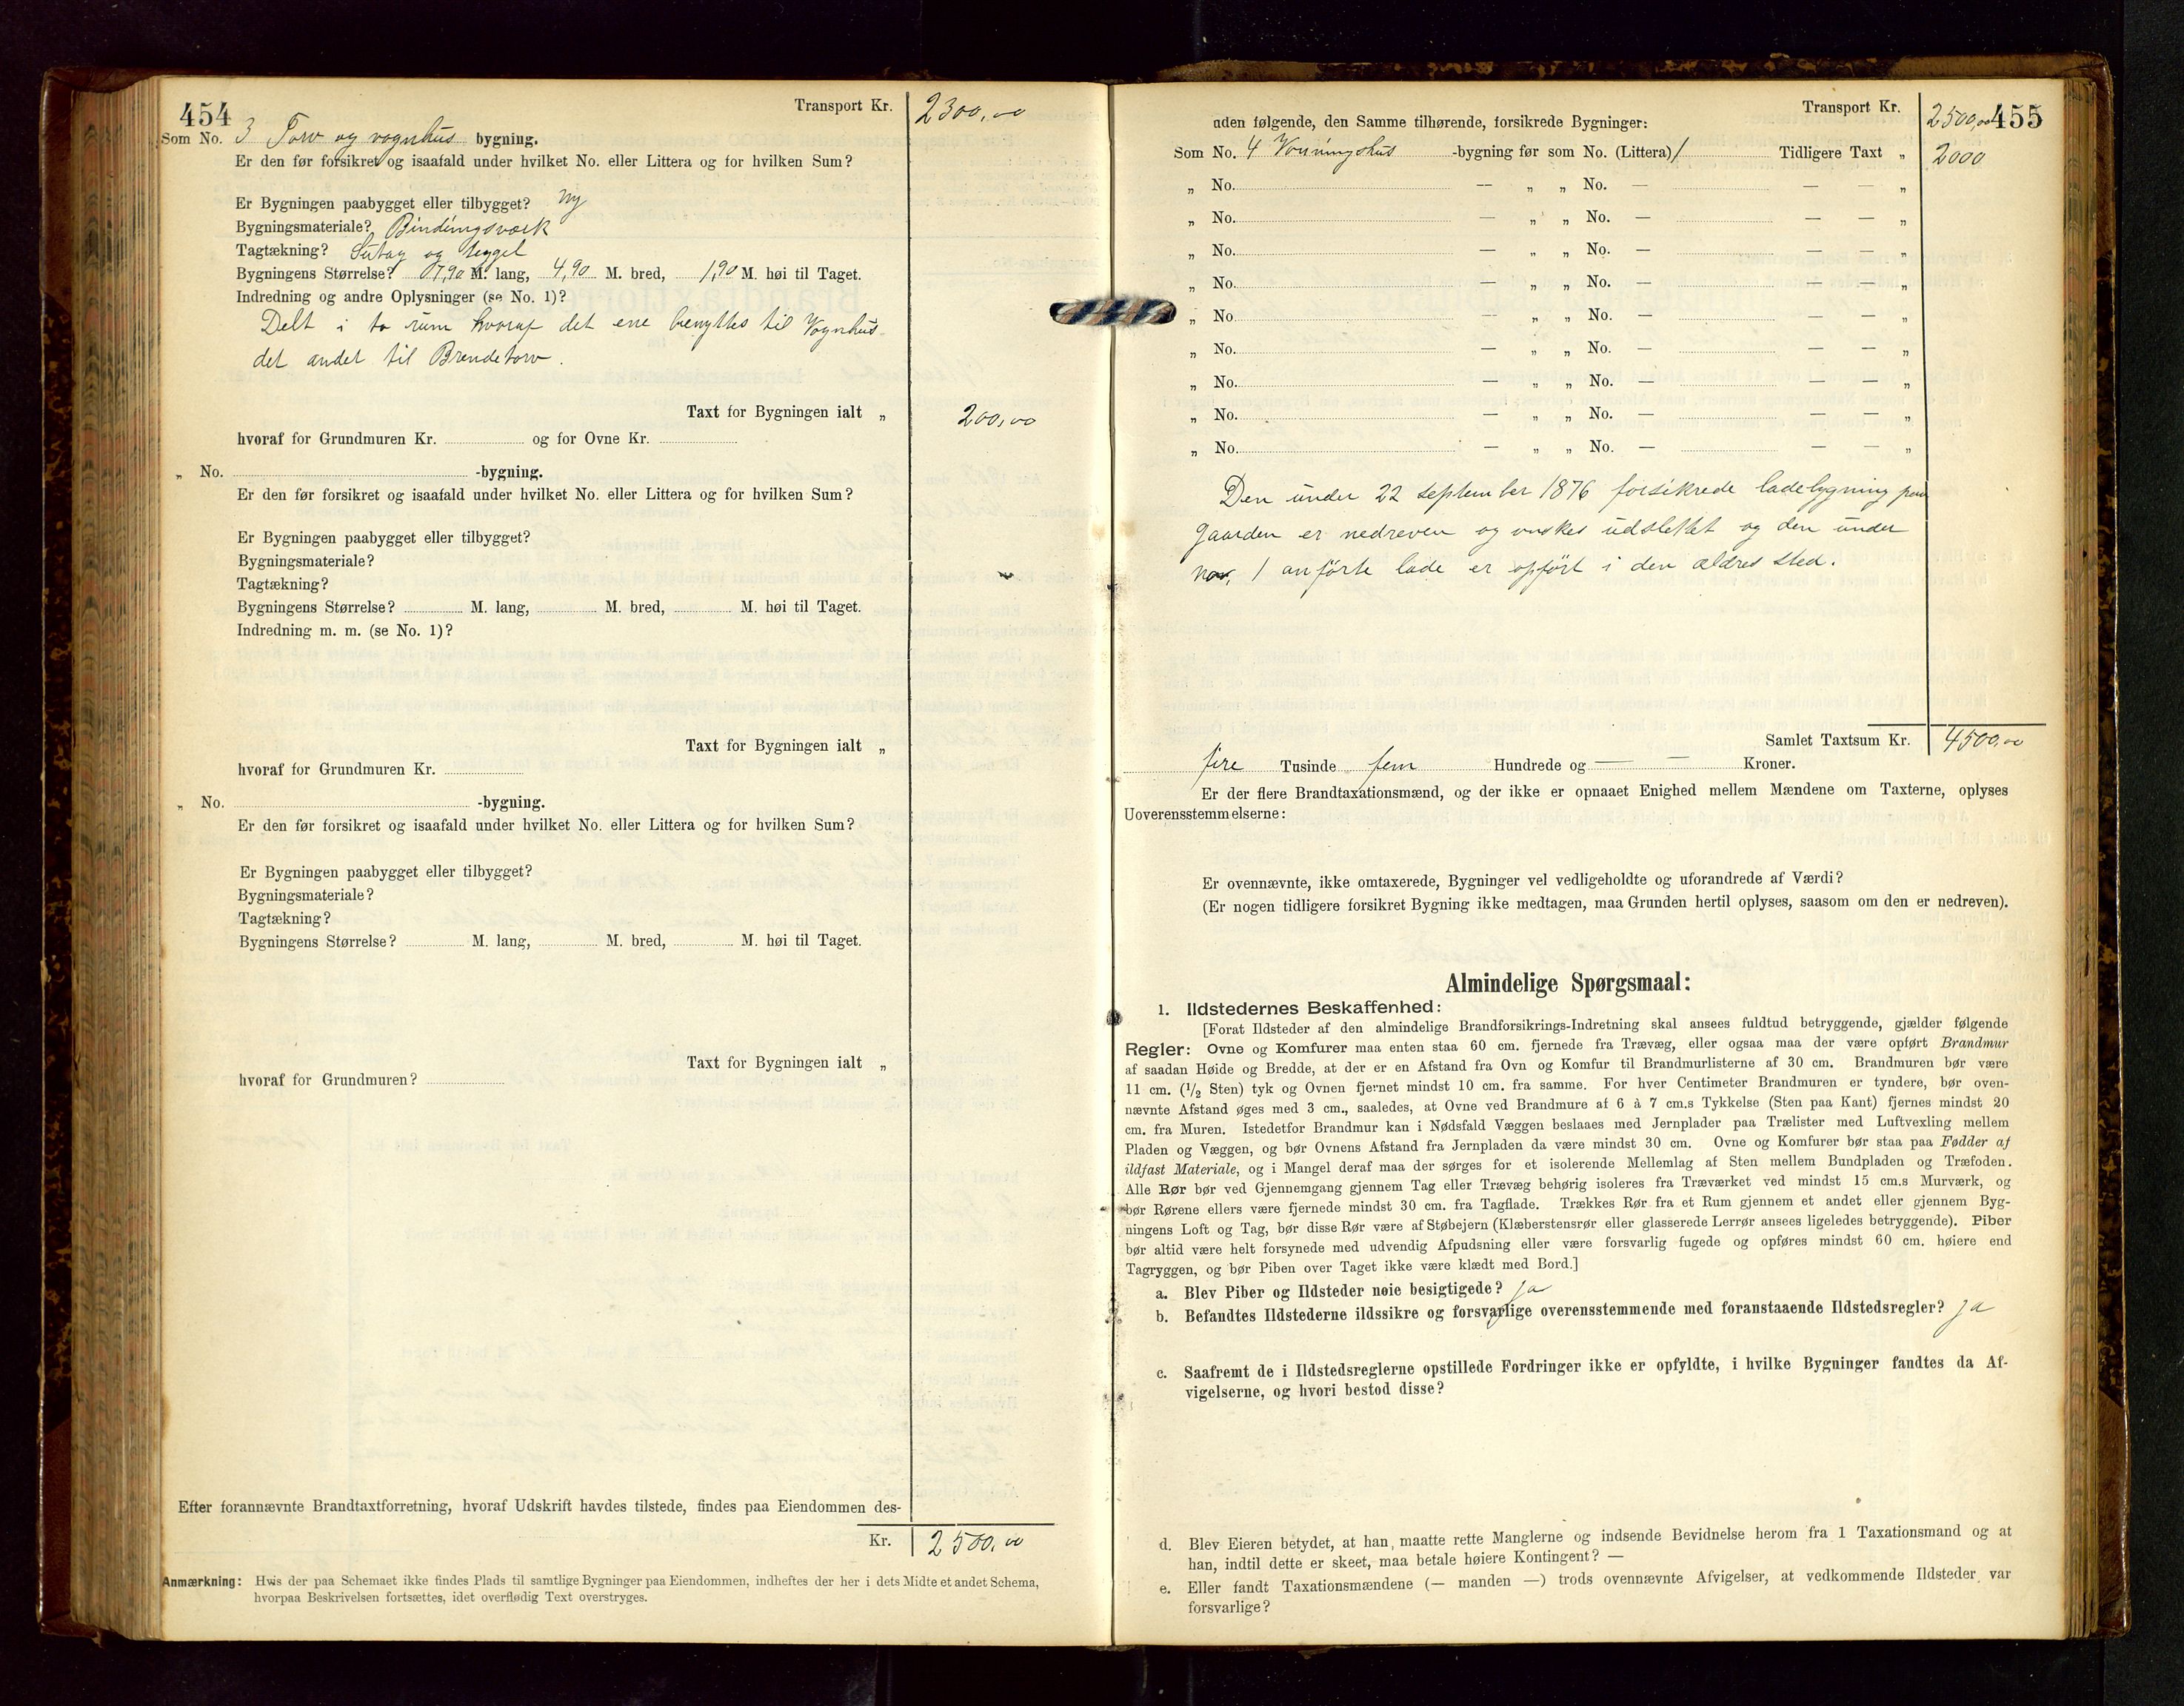 454
Transport Kr. 2300,00
Som No. 3 Torv og vognhus bygning.
Er den før forsikret og isaafald under hvilket No. eller Littera og for hvilken Sum?
Er Bygningen paabygget eller tilbygget? Ny
Bygningsmateriale? Bindingsværk
Tagtækning? og teggel
Bygningens Størrelse? 7,90 M. lang, 4,90 M. bred, 1,90 M. høi til Taget.
Indredning og andre Oplysninger (se No. 1)?
Delt i to rum hvoraf det ene benyttes til Vognhus
det andet til Brendetorv.
Taxt for Bygningen ialt „ 200,00
hvoraf for Grundmuren Kr. og for Ovne Kr.
„ No. -bygning.
Er den før forsikret og isaafald under hvilket No. eller Littera og for hvilken Sum?
Er Bygningen paabygget eller tilbygget?
Bygningsmateriale?
Tagtækning?
Bygningens Størrelse? M. lang, M. bred, M. høi til Taget.
Indredning m. m. (se No. 1)?
Taxt for Bygningen ialt „
hvoraf for Grundmuren Kr.
„ No. -bygning.
Er den før forsikret og isaafald under hvilket No. eller Littera og for hvilken Sum?
Er Bygningen paabygget eller tilbygget?
Bygningsmateriale?
Tagtækning?
Bygningens Størrelse? M. lang, M. bred, M. høi til Taget.
Taxt for Bygningen ialt „
hvoraf for Grundmuren?
Efter forannævnte Brandtaxtforretning, hvoraf Udskrift havdes tilstede, findes paa Eiendommen des-
Kr. 2500,00
Anmærkning: Hvis der paa Schemaet ikke findes Plads til samtlige Bygninger paa Eiendommen, indheftes der her i dets Midte et andet Schema,
hvorpaa Beskrivelsen fortsættes, idet overflødig Text overstryges.
Transport Kr. 2500,00 455
uden følgende, den Samme tilhørende, forsikrede Bygninger:
Som No. 4 Vouningshus -bygning før som No. (Littera) 1 Tidligere Taxt „ 2000
„ No. — „ „ No. — — — „
„ No. — „ „ No. — — — „
„ No. — „ „ No. — — — „
„ No. — „ „ No. — — — „
„ No. — „ „ No. — — — „
„ No. — „ „ No. — — — „
„ No. — „ „ No. — — — „
„ No. — „ „ No. — — — „
„ No. — „ „ No. — — — „
Den under 22 september 1876 forsikrede ladebygning paa
gaarden er nedreven og onskes udslettet og den under
1 anførte lade er opført i den ældres sted.
Samlet Taxtsum Kr. 4500,00
fire Tusinde fem Hundrede og — — Kroner.
Er der flere Brandtaxationsmænd, og der ikke er opnaaet Enighed mellem Mændene om Taxterne, oplyses
Uoverensstemmelserne:
Er ovennævnte, ikke omtaxerede, Bygninger vel vedligeholdte og uforandrede af Værdi?
(Er nogen tidligere forsikret Bygning ikke medtagen, maa Grunden hertil oplyses, saasom om den er nedreven).
Almindelige Spørgsmaal:
1. Ildstedernes Beskaffenhed:
[Forat Ildsteder af den almindelige Brandforsikrings-Indretning skal ansees fuldtud betryggende, gjælder følgende
Regler: Ovne og Komfurer maa enten staa 60 cm. fjernede fra Trævæg, eller ogsaa maa der være opført Brandmur
af saadan Høide og Bredde, at der er en Afstand fra Ovn og Komfur til Brandmurlisterne af 30 cm. Brandmuren bør være
11 cm. (1/2 Sten) tyk og Ovnen fjernet mindst 10 cm. fra samme. For hver Centimeter Brandmuren er tyndere, bør oven-
nævnte Afstand øges med 3 cm., saaledes, at Ovne ved Brandmure af 6 à 7 cm.s Tykkelse (Sten paa Kant) fjernes mindst 20
cm. fra Muren. Istedetfor Brandmur kan i Nødsfald Væggen beslaaes med Jernplader paa Trælister med Luftvexling mellem
Pladen og Væggen, og bør Ovnens Afstand fra Jernpladen da være mindst 30 cm. Ovne og Komfurer bør staa paa Fødder af
ildfast Materiale, og i Mangel deraf maa der sørges for et isolerende Mellemlag af Sten mellem Bundpladen og Træfoden.
Alle Rør bør ved Gjennemgang gjennem Tag eller Trævæg behørig isoleres fra Træværket ved mindst 15 cm.s Murværk, og
bør Rørene ellers være fjernede mindst 30 cm. fra Tagflade. Trækkes Rør fra et Rum gjennem et andet eller gjennem Byg-
ningens Loft og Tag, bør disse Rør være af Støbejern (Klæberstensrør eller glasserede Lerrør ansees ligeledes betryggende). Piber
bør altid være helt forsynede med udvendig Afpudsning eller være forsvarlig fugede og opføres mindst 60 cm. høiere end
Tagryggen, og bør Piben over Taget ikke være klædt med Bord.]
a. Blev Piber og Ildsteder nøie besigtigede? ja
b. Befandtes Ildstederne ildssikre og forsvarlige overensstemmende med foranstaaende Ildstedsregler? ja
c. Saafremt de i Ildstedsreglerne opstillede Fordringer ikke er opfyldte, i hvilke Bygninger fandtes da Af-
vigelserne, og hvori bestod disse?
d. Blev Eieren betydet, at han maatte rette Manglerne og indsende Bevidnelse herom fra 1 Taxationsmand og at
han, indtil dette er skeet, maa betale høiere Kontingent? —
e. Eller fandt Taxationsmændene (— manden —) trods ovennævnte Afvigelser, at vedkommende Ildsteder var
forsvarlige?